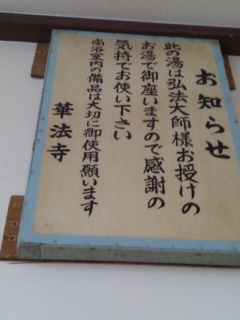 お知らせ
此の湯は弘法大師様お授けの
お湯で御座いますので感謝の
気持でお使い下さい
尚浴室内の備品は大切に御使用願います
華法寺